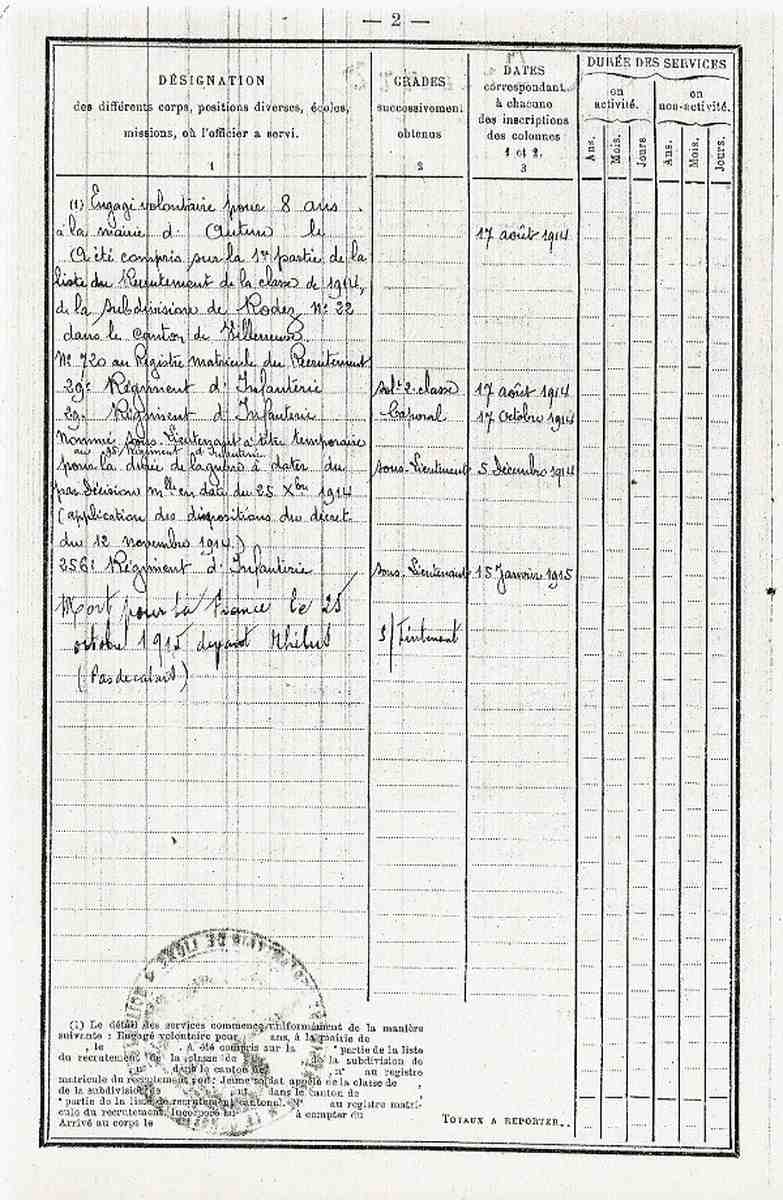 — 2 —
DÉSIGNATION
des différents corps, positions diverses, écoles,
missions, où l'officier a servi.
1
GRADES
successivement
obtenus
2
DATES
correspondant
à chacune
des inscriptions
des colonnes
1 et 2.
3
DURÉE DES SERVICES
en
activité.
en
non-activité.
Ans.
Mois.
Jours
Ans.
Mois.
Jours.
(1) Engagé volontaire pour 8 ans
à la mairie d' Autun le 17 août 1914
A été compris sur la 1re partie de la
liste du Recrutement de la classe de 1914,
de la subdivision de Rodez No 22
dans le canton de Villeneuve.
No 720 au Registre matricule du Recrutement
29e Régiment d'Infanterie solt 2e classe 17 août 1914
29e Régiment d'Infanterie Caporal 17 Octobre 1914
Nommé sous-Lieutenant à titre temporaire
au Régiment d'Infanterie
pour la durée de la guerre à dater du sous-Lieutenant 5 Décembre 1914
par Décision mlle en date du 25 Xbre 1914
(application des dispositions du décret
du 12 novembre 1914.)
256e Régiment d'Infanterie sous-Lieutenant 15 Janvier 1915
Mort pour La France le 25
octobre 1915 devant Thélus S/Lieutenant
(Pas de calais)
(1) Le détail des services commence uniformément de la manière
suivante : Engagé volontaire pour ans, à la mairie de
, le . A été compris sur la e partie de la liste
du recrutement de la classe de , de la subdivision de
, no dans le canton de , no au registre
matricule du recrutement, ou : Jeune soldat appelé de la classe de ,
de la subdivision de , no dans le canton de
e partie de la liste de recrutement cantonal. No au registre matri-
cule du recrutement. Incorporé au à compter du
Arrivé au corps le
TOTAUX A REPORTER..